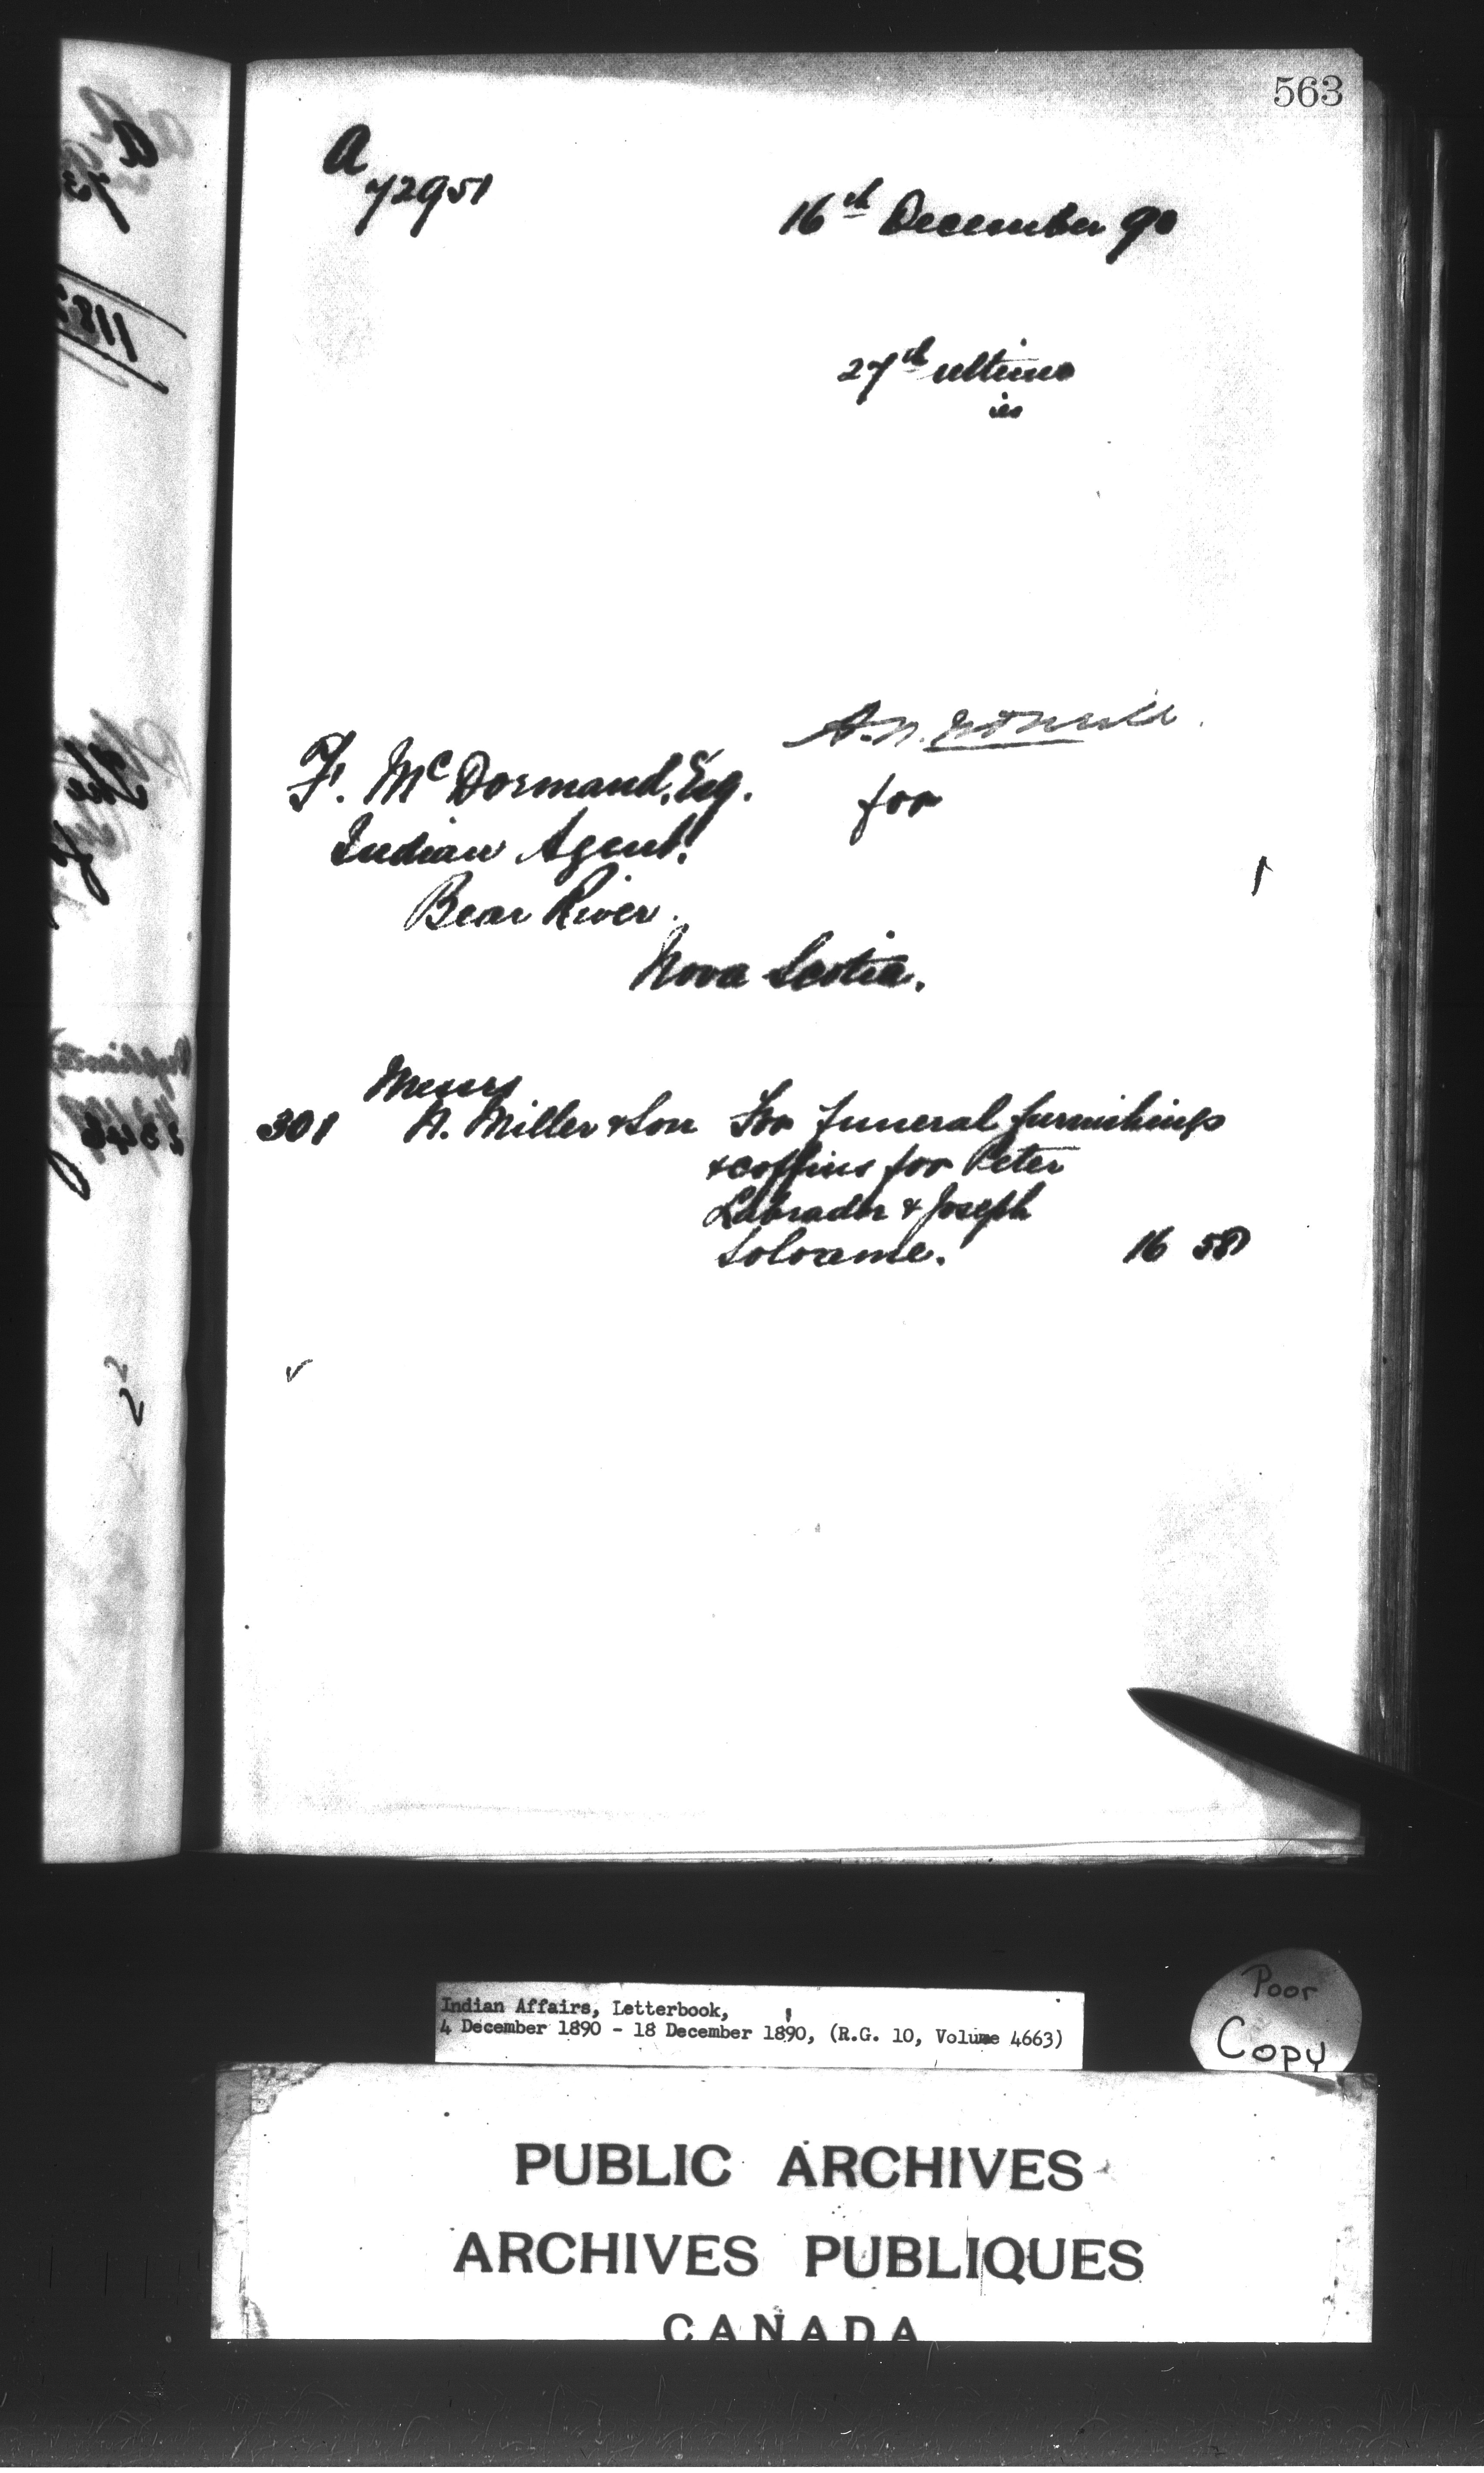 563
A
72951
16th December 90
27th ultimo
is
for
F. McDormand, Esq.
Indian Agent.
Bear River.
Nova Scotia.
Messrs
301 A. Miller & Son For funeral furnishings
& coffins for Peter
Labrador & Joseph
16 58
Indian Affairs, Letterbook,
4 December 1890 - 18 December 1890, (R.G. 10, Volume 4663)
Poor
Copy
PUBLIC ARCHIVES
ARCHIVES PUBLIQUES
CANADA